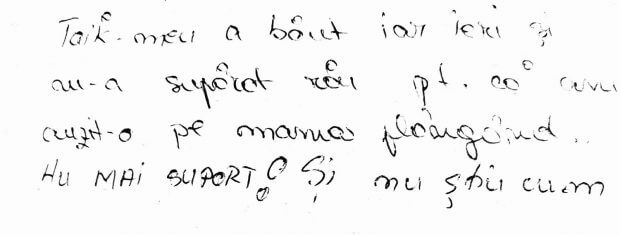 Taik-meu a băut iar ieri și
m-a supărat rău pt. că am
auzit-o pe mama plângând..
NU MAI SUPORT! Și nu știu cum